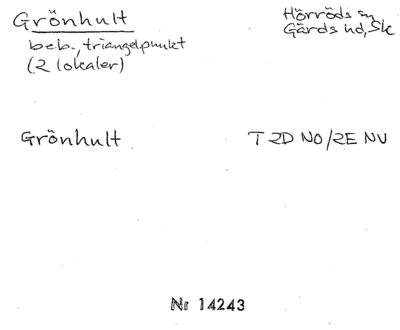 Grönhult
Hörröds sn
beb., triangelpunkt
Gärds hd, Sk
(2 lokaler)
Grönhult
T 2D NO/2E NV
Nr 14243